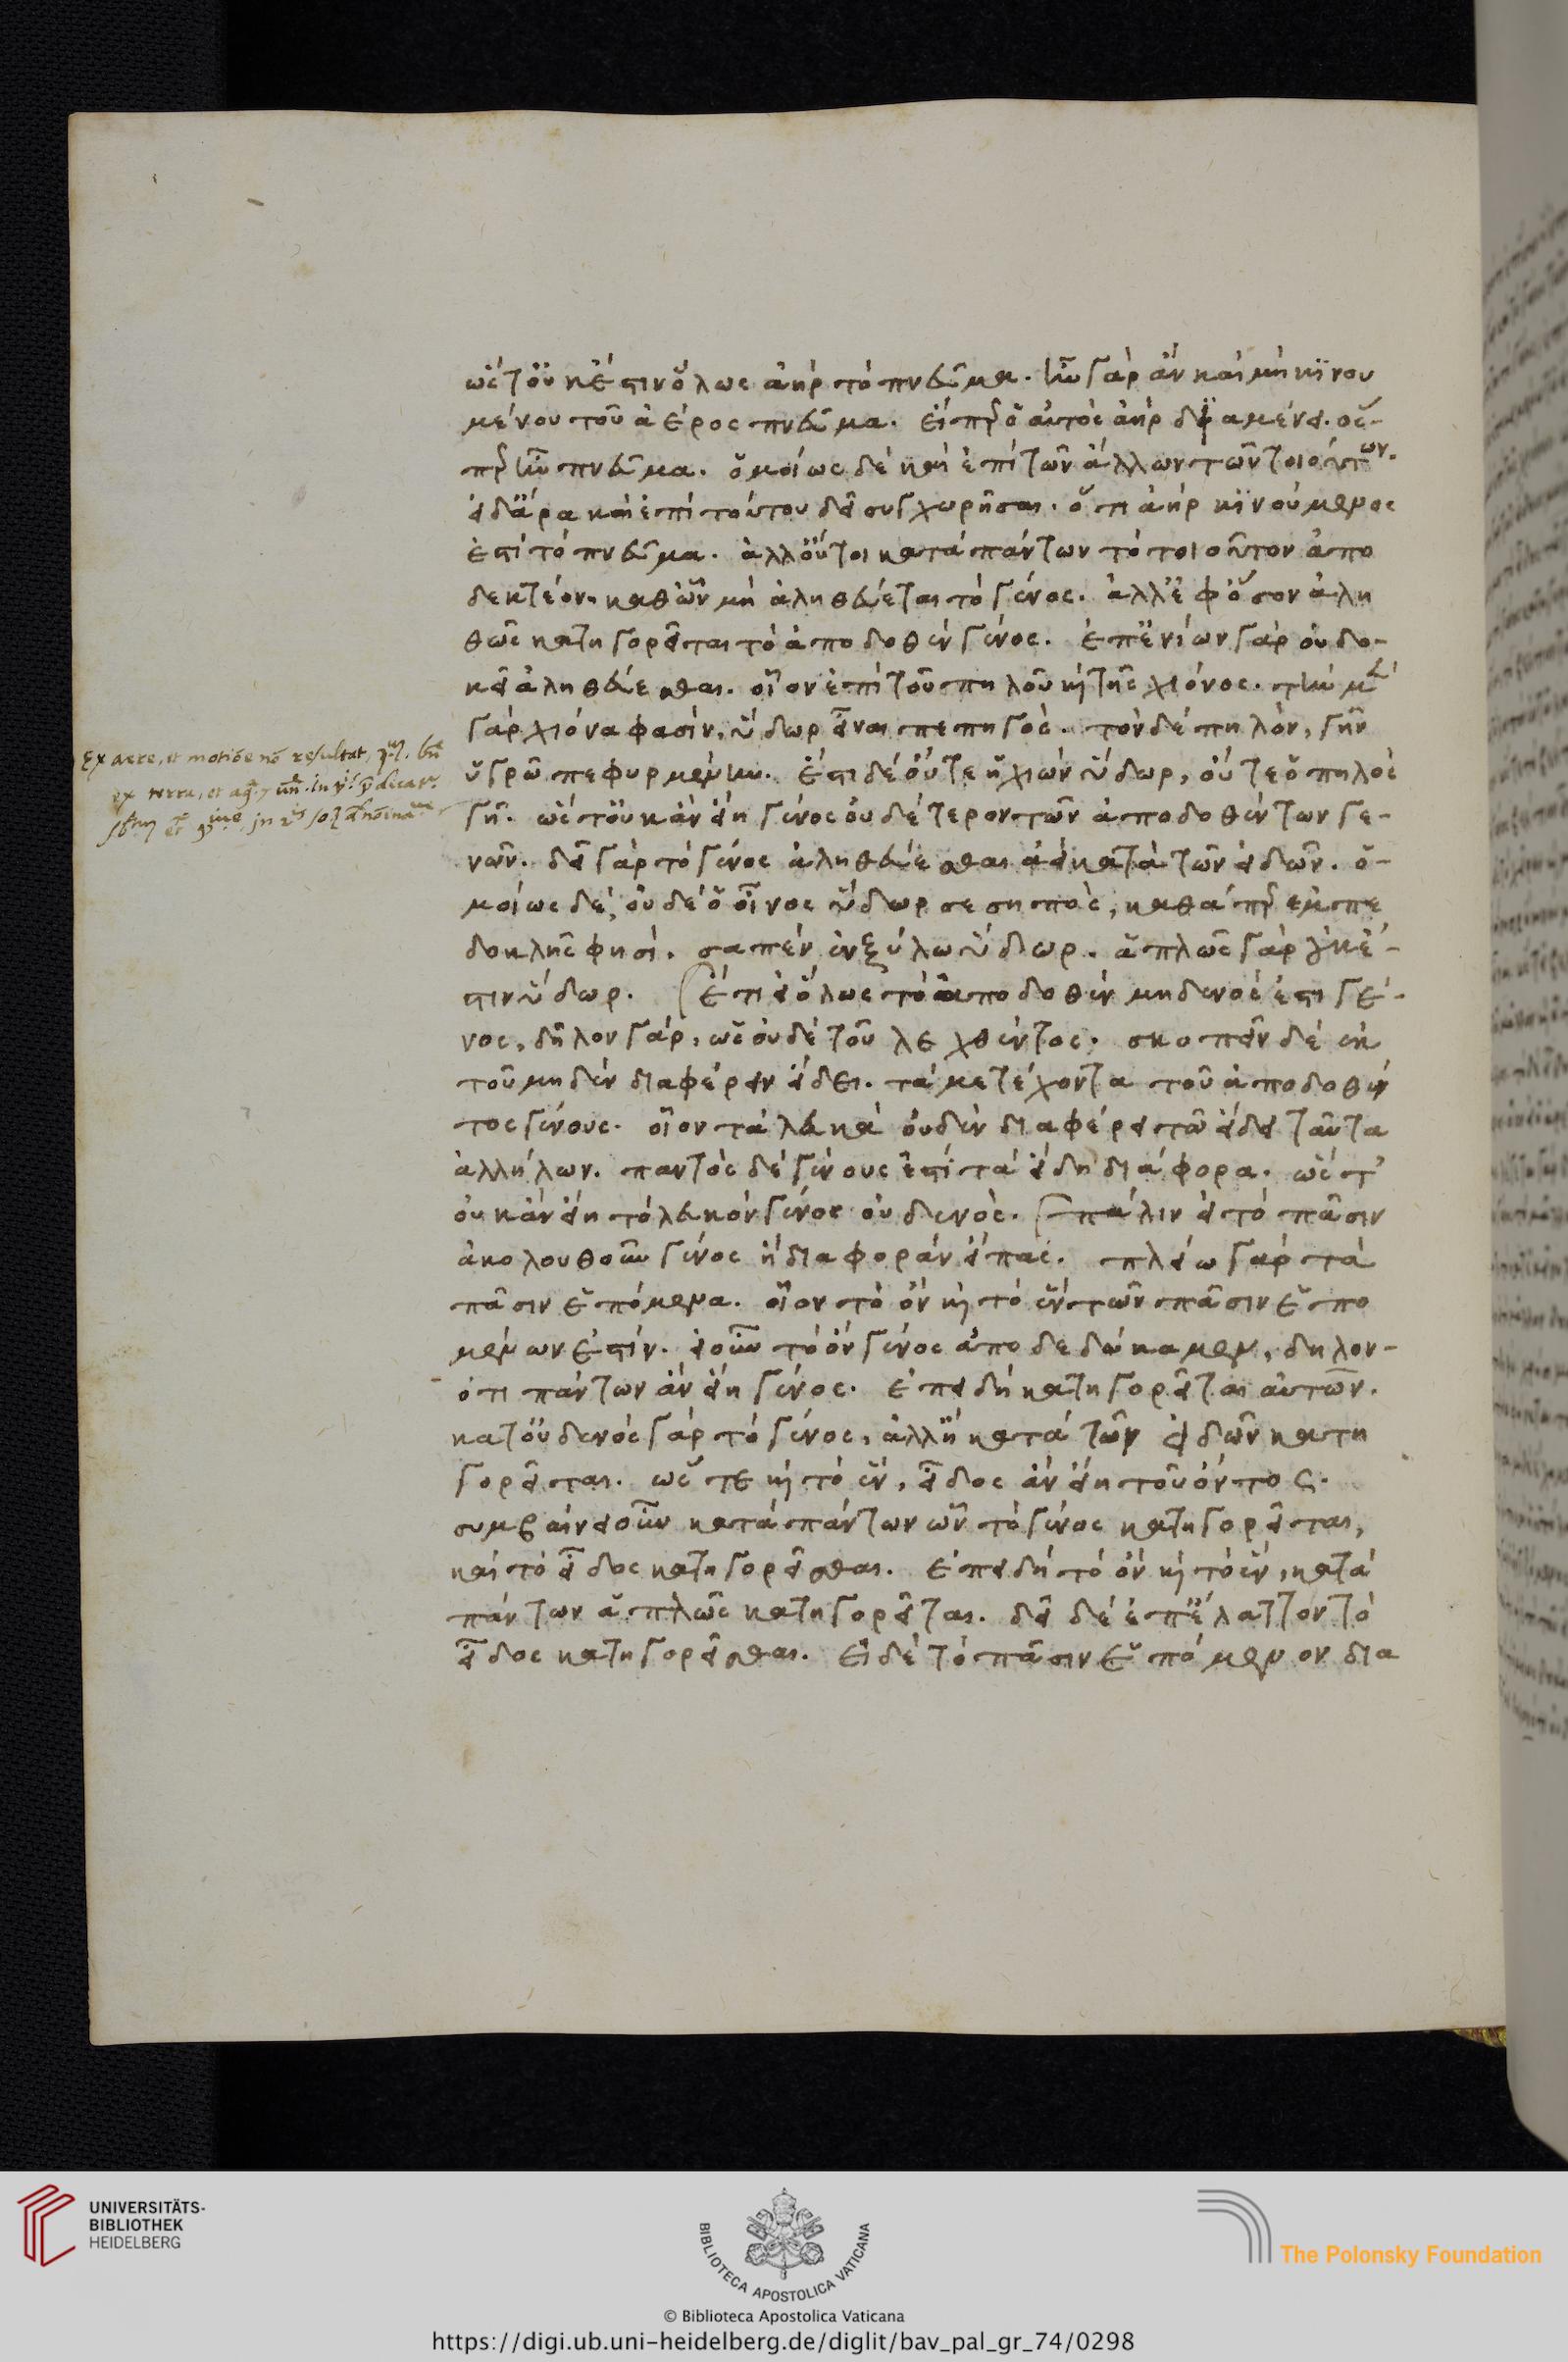 ὥστ' οὐκ ἔστιν ὅλως ἀὴρ τὸ πνεῦμα. ἦν γὰρ ἂν καὶ μὴ κινου
μένου τοῦ ἀέρος πνεῦμα. εἴπερ ὁ αὐτὸς ἀὴρ διαμένει. ὅς-
περ ἦν πνεῦμα. ὁμοίως δὲ καὶ ἐπὶ τῶν ἄλλων τῶν τοιούτων.
εἰ δ' ἄρα καὶ ἐπὶ τούτου δεῖ συγχωρῆσαι. ὅτι ἀὴρ κινούμενος
ἐστὶ τὸ πνεῦμα. ἀλλ' οὔτοι κατὰ πάντων τὸ τοιοῦτον ἀπο
δεκτέον. καθ' ὧν μὴ ἀληθεύεται τὸ γένος. ἀλλ' ἐφ' ὅσον ἀλη
θῶς κατηγορεῖται τὸ ἀποδοθὲν γένος. ἐπ' ἐνίων γὰρ οὐ δο-
κεῖ ἀληθεύεσθαι. οἷον ἐπὶ τοῦ πηλοῦ καὶ τῆς χιόνος. τὴν μὲν
γὰρ χιόνα φασὶν, ὕδωρ εἶναι πεπηγός. τὸν δὲ πηλὸν, γῆν
ὑγρῷ πεφυρμένην. ἔστι δὲ οὔτε ἡ χιὼν ὕδωρ, οὔτε ὁ πηλὸς
γῆ. ὥστ' οὐκ ἂν εἴη γένος οὐδέτερον τῶν ἀποδοθέντων γε-
νῶν. δεῖ γὰρ τὸ γένος ἀληθεύεσθαι ἀεὶ κατὰ τῶν εἰδῶν. ὁ-
μοίως δὲ, οὐδὲ ὁ οἶνος ὕδωρ σεσηπὸς, καθάπερ ἐμπε
δοκλῆς φησί. σαπὲν ἐν ξύλῳ ὕδωρ. ἁπλῶς γὰρ οὐκ ἔ-
στιν ὕδωρ. ἔτι εἰ ὅλως τὸ ἀποδοθὲν μηδενός ἐστι γέ-
νος, δῆλον γὰρ, ὡς οὐδὲ τοῦ λεχθέντος. σκοπεῖν δὲ ἐκ
τοῦ μηδὲν διαφέρειν εἴδει. τὰ μετέχοντα τοῦ ἀποδοθέν
τος γένους. οἷον τὰ λευκὰ οὐδὲν διαφέρει τῷ εἴδει ταῦτα
ἀλλήλων. παντὸς δὲ γένους ἐστὶ τὰ εἴδη διάφορα. ὥστ'
οὐκ ἂν εἴη τὸ λευκὸν γένος οὐδενός. πάλιν εἰ τὸ πᾶσιν
ἀκολουθοῦν γένος ἢ διαφορὰν εἶπας. πλείω γὰρ τὰ
πᾶσιν ἑπόμενα. οἷον τὸ ὂν καὶ τὸ ἓν τῶν πᾶσιν ἑπο
μένων ἐστίν. εἰ οὖν τὸ ὂν γένος ἀποδεδώκαμεν, δηλον-
ότι πάντων ἂν εἴη γένος. ἐπειδὴ κατηγορεῖται αὐτῶν.
κατ' οὐδενὸς γὰρ τὸ γένος, ἀλλ' ἢ κατὰ τῶν εἰδῶν κατη
γορεῖται. ὥστε καὶ τὸ ἓν, εἶδος ἂν εἴη τοῦ ὄντος.
συμβαίνει οὖν κατὰ πάντων ὧν τὸ γένος κατηγορεῖται,
καὶ τὸ εἶδος κατηγορεῖσθαι. ἐπειδὴ τὸ ὂν καὶ τὸ ἓν, κατὰ
πάντων ἁπλῶς κατηγορεῖται. δεῖ δὲ ἐπ' ἔλαττον τὸ
εἶδος κατηγορεῖσθαι. εἰ δὲ τὸ πᾶσιν ἑπόμενον δια
Ex aere, et motiōe nō resultat,
ex terra, et
UNIVERSITÄTS-
BIBLIOTHEK
HEIDELBERG
BIBLIOTECA APOSTOLICA VATICANA
The Polonsky Foundation
© Biblioteca Apostolica Vaticana
https://digi.ub.uni-heidelberg.de/diglit/bav_pal_gr_74/0298